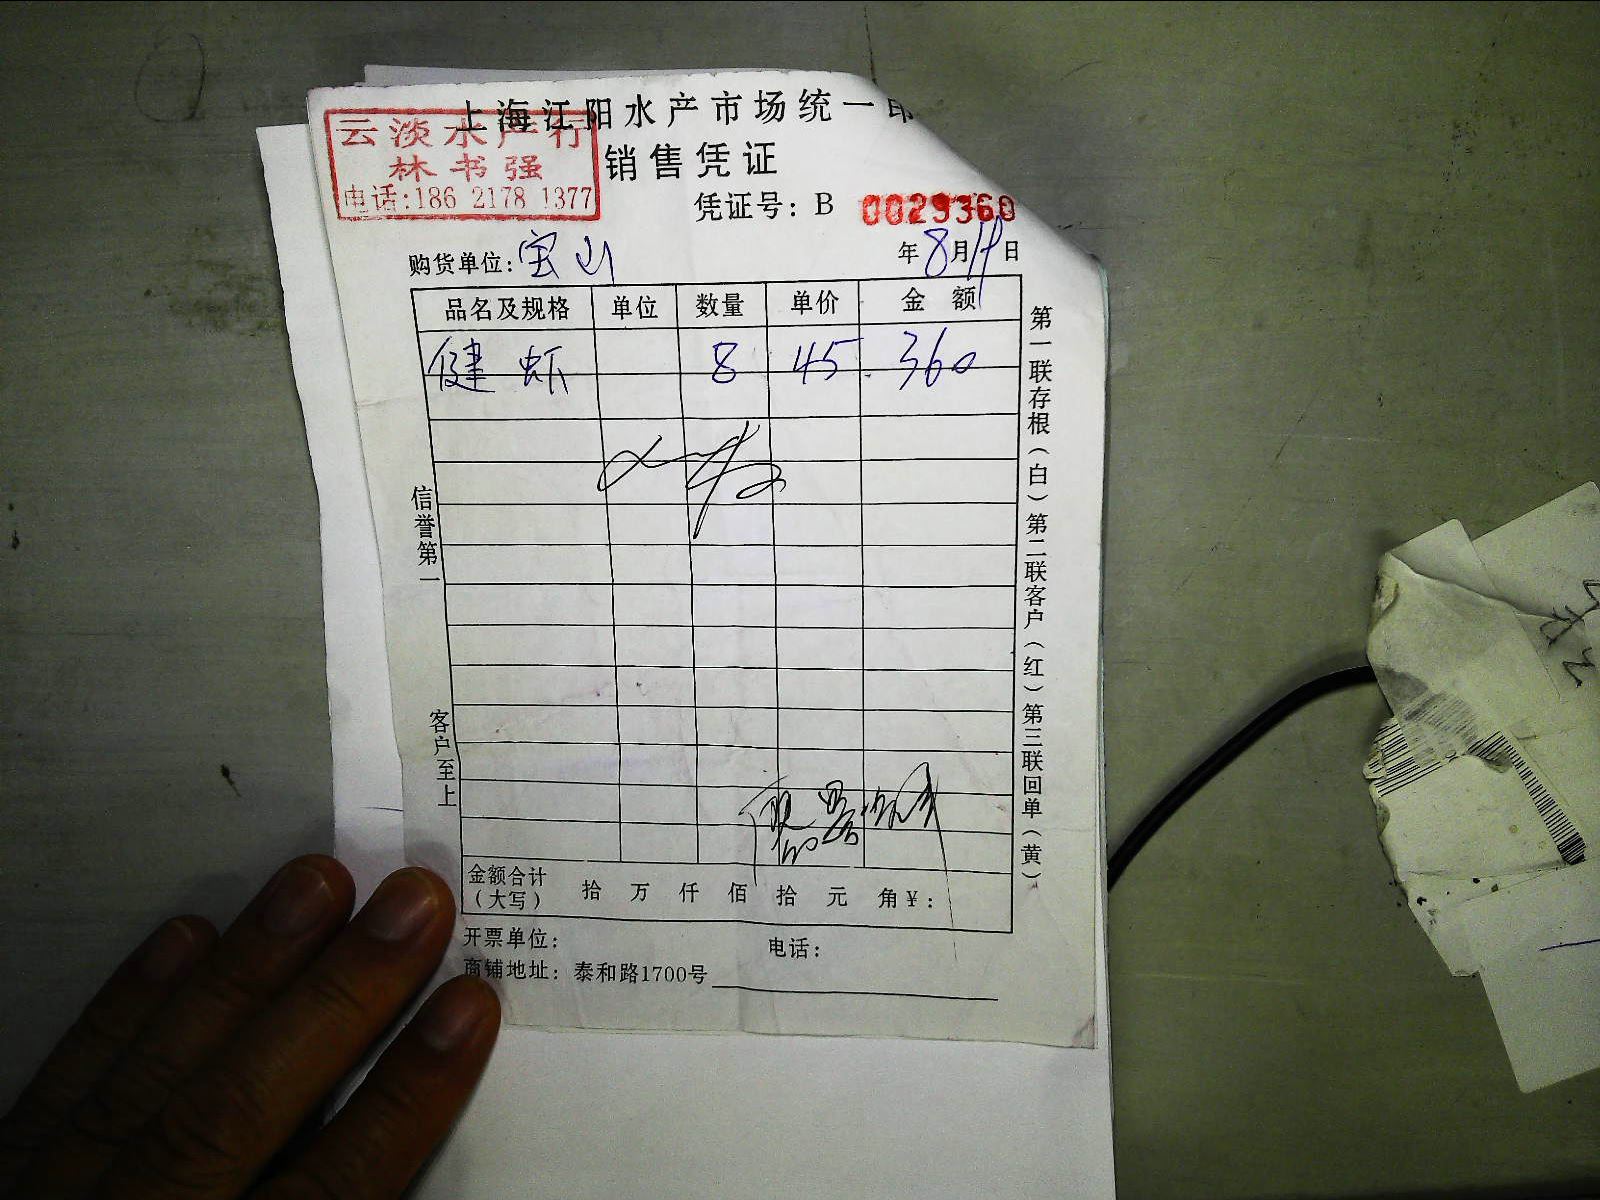 上海江阳水产市场统一印
云淡水产行
林书强
电话:186 2178 1377
销售凭证
凭证号: B 0029360
购货单位: 宝山
年8月19日
品名及规格 单位 数量 单价 金额
健虾 8 45 360
信誉第一
客户至上
第一联存根(白)第二联客户(红)第三联回单(黄)
金额合计
(大写) 拾 万 仟 佰 拾 元 角 ¥:
开票单位: 电话:
商铺地址: 泰和路1700号